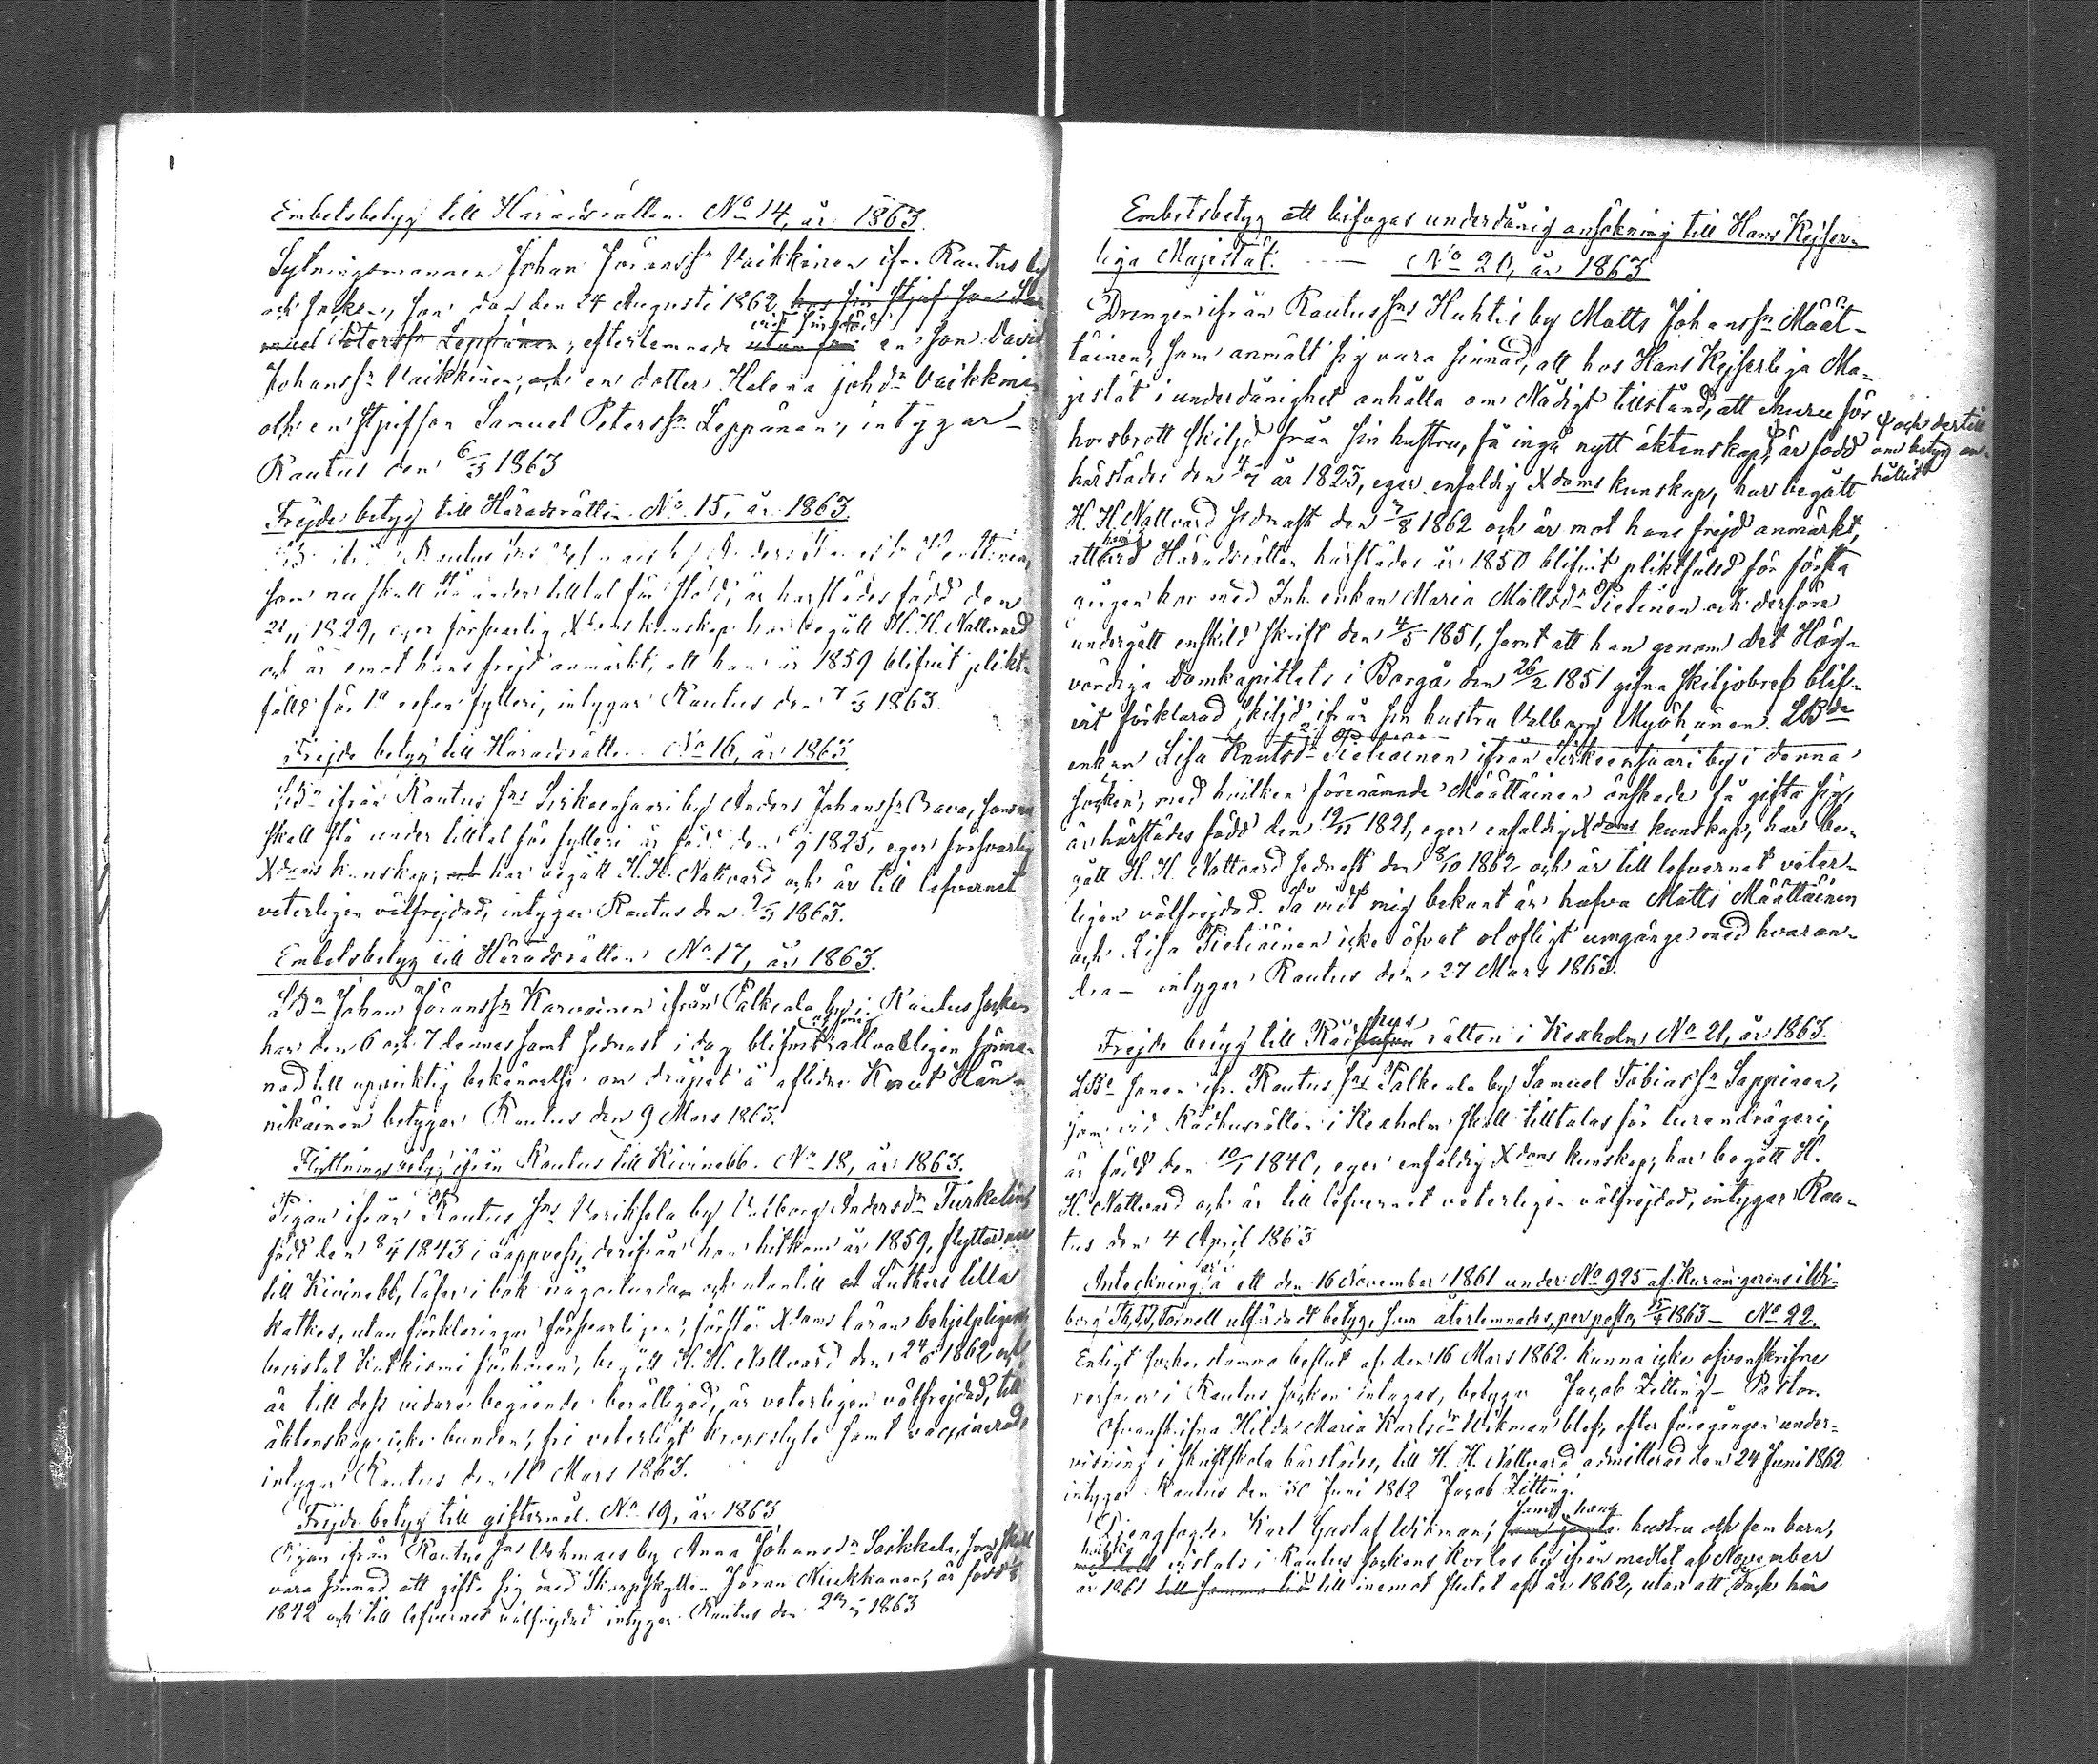 Embetsbetyg till Häradsrätten. No 14, år 1863.
Sytningsmannen Johan Göranssn Vaikkinen ifrn Rautus by
och socken, som dog den 24 Augusti 1862, hos sin stjufson Sa-
muel Peterssn Leppänen, efterlemnade vid sin död utom en son David
Johanssn Vaikkinen, och en dotter Helena Johdr Vaikkinen
och en stjufson Samuel Peterssn Leppänen, intygar –
Rautus den 6/3 1863
Frejdebetyg till Häradsrätten No 15, år 1863.
som nu skall stå under tilltal för stöld, är härstädes född den
21/11 1829, eger försvarlig Xdoms kunskap har begått H. H. Nattvard
och är emot hans frejd anmärkt, att han år 1859 blifvit plikt-
fälld för 1a resan fylleri, intygar Rautus den 7/3 1863.
Frejdebetyg till Häradsrätten No 16, år 1863.
LBn ifrån Rautus sns Sirkeensaari by Anders Johanssn som nu
skall stå under tilltal för fylleri är född den 1825, eger försvarlig
Xdoms kunskap, och har begått H. H. Nattvard och är till lefvernet
veterligen välfrejdad, intygar Rautus den 9/3 1863.
Embetsbetyg till Häradsrätten No 17, år 1863.
LBn Johan Göranssn Karvainen ifrån Palkeala by i Rautus socken
har den 6 och 7 dennes samt sednast i dag blifvit af mig allvarligen förma-
nad till uprigtig bekännelse om dråpet å aflidne Knut Hän-
nikäinen betygar Rautus den 9 Mars 1863.
Flyttningsbetyg ifrån Rautus till Kivinebb. No 18, år 1863.
Pigan ifrån Rautus sns Varikselä by Valborg Andersdr Turkelin
född den 8/4 1843 i dit hon hitkom år 1859, flyttar nu
till Kivinebb, läser i bok någorlunda och utantill Luthers lilla
katkes, utan förklaringar försvarligen, förstår Xdoms läran behjelpligen
bevistat Katkismi förhören, begått H. H. Nattvard den 24/6 1862 och
är till dess vidare begående berättigad, är veterligen välfrejdad, till
äktenskap icke bunden, fri veterligt kroppslyte samt vaccinerad,
intygar Rautus den 10 Mars 1863.
Frejdebetyg till giftermål. No 19, år 1863
Pigan ifrån Rautus sns Vehmais by Anna Johansdr Loikkala, som skall
vara sinnad att gifta sig med Skarpskytten Göran Nuikkanen, är född
1842 och till lefvernet välfrejdad intygar Rautus den 1863
Embetsbetyg att bifogas underdånig ansökning till Hans Kejser-
liga Majestät. — No 20, år 1863
Drengen ifrån Rautus sns Huhtis by Matts Johanssn Määt-
täinen, som anmält sig vara sinnad, att hos Hans Kejserliga Ma-
jestät i underdånighet anhålla om Nådigt tillstånd, att ehuru för
horsbrott skiljd från sin hustru, få ingå nytt äktenskap, är född
och dertill
om betyg an-
hållit
härstädes den 4/7 år 1825, eger enfaldig Xdoms kunskap, har begått
H. H. Nattvard sednast den 3/8 1862 och är mot hans frejd anmärkt,
att han vid Häradsrätten härstädes år 1850 blifvit pliktfälld för första
gången hor med Inh. enkan Maria Mattsdr Pietinen och derföre
undergått enskild skrift den 4/5 1851, samt att han genom det Hög-
vördiga Domkapitlets i Borgå den 26/2 1851 gifna skiljobref blif-
vit förklarad skiljd ifrån sin hustru Valborg Myöhänen. LBde
enkan Lisa Knutsdr Pietiäinen ifrån Sirkeensaari by i denna
socken, med hvilken förenämnde Määttäinen önskade få gifta sig,
är härstädes född den 19/11 1821, eger enfaldig Xdoms kunskap, har be-
gått H. H. Nattvard sednast den 8/10 1862 och är till lefvernet veter-
ligen välfrejdad. Så vidt mig bekant är hafva Matts Määttäinen
och Lisa Pietiäinen icke öfvat olofligt umgänge med hvaran-
dra – intygar Rautus den 27 Mars 1863.
Frejdebetyg till Råd hus rätten i Kexholm No 21, år 1863.
LBde sonen ifr. Rautus sns Palkeala by Samuel Tobiassn Lappinen,
som vid Rådhusrätten i Kexholm skall tilltalas för lurendrägeri,
är född den 10/1 1840, eger enfaldig Xdoms kunskap, har begått H.
H. Nattvard och är till lefvernet veterligen välfrejdad, intygar Rau-
tus den 4 April 1863
Anteckningar å ett den 16 November 1861 under No 925 af i Wi-
borg Törnell utfärdadt betyg, som återlemnades per posto 15/4 1863 – No 22.
Enligt sockenstämmo beslut af den 16 Mars 1862 kunna icke ofvanskrifne
personer i Rautus socken intagas, betygar Jacob Zitting – Pastor.
Ofvanskrifna Hilda Maria Karlsdr Wikman blef, efter föregången under-
visning i skriftskola härstädes, till H. H. Nattvard admitterad den 24 Juni 1862
intygar Rautus den 30 Juni 1862 Jacob Zitting.
Karl Gustaf Wikman, samt hans hustru och fem barn,
hvilka vistats i Rautus sockens by ifrån medlet af November
år 1861 till samma tid till inemot slutet af år 1862, utan att dock här